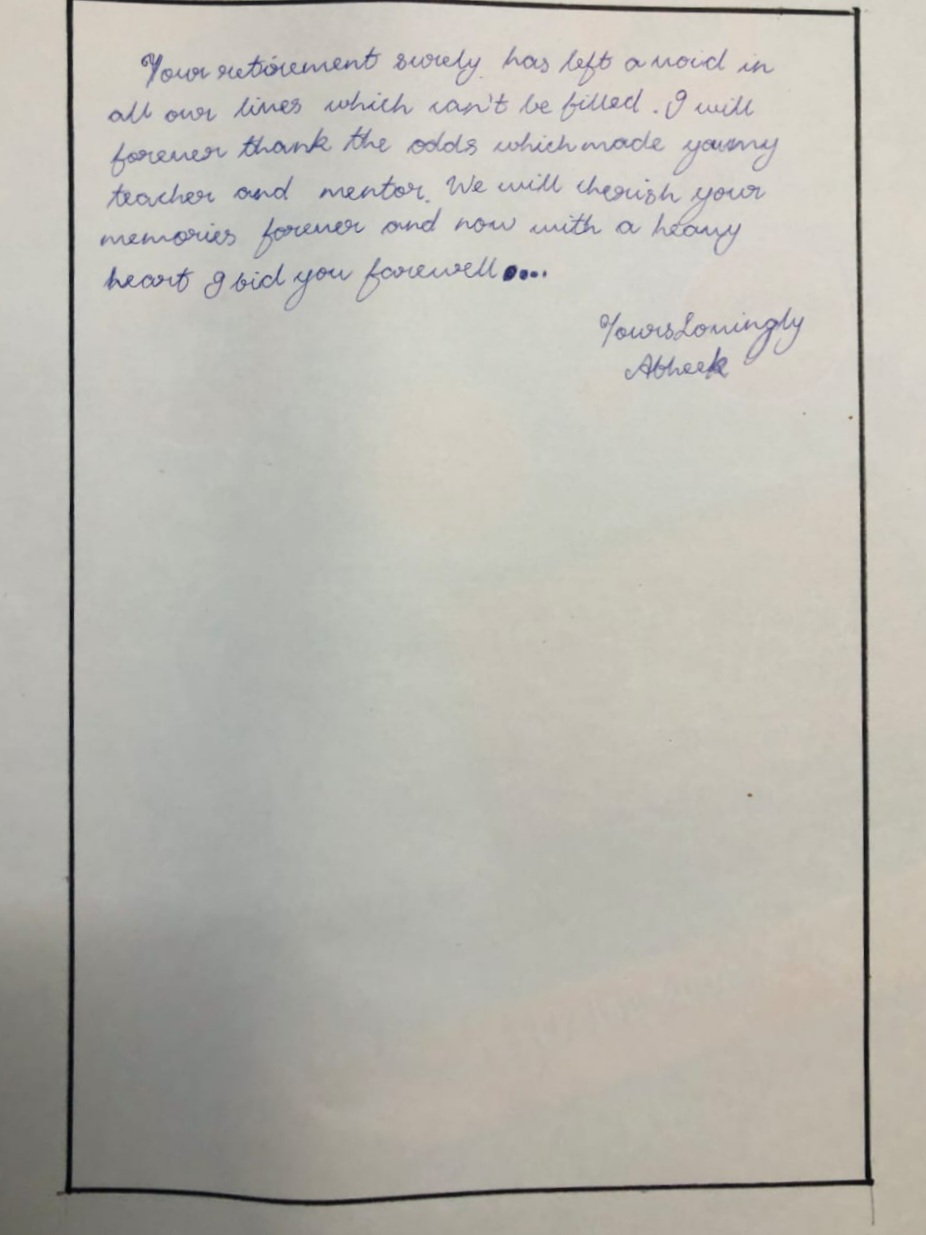 Your retirement surely has left a void in
all our lives which can't be filled. I will
forever thank the odds which made you my
teacher and mentor. We will cherish your
memories forever and now with a heavy
heart I bid you farewell....
Yours Lovingly
Abheek